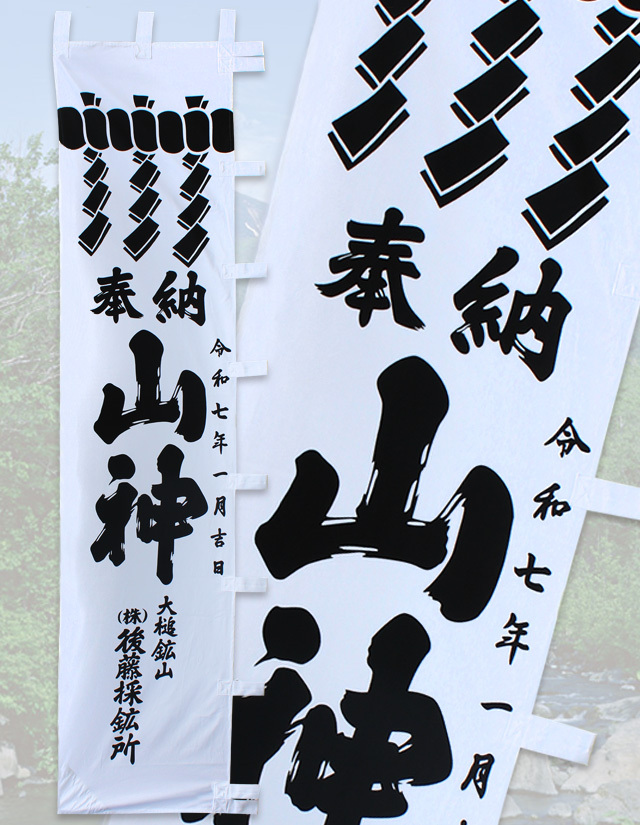 奉納
山神
令和七年一月吉日
大槌鉱山
(株)後藤採鉱所
奉納
山神
令和七年一月